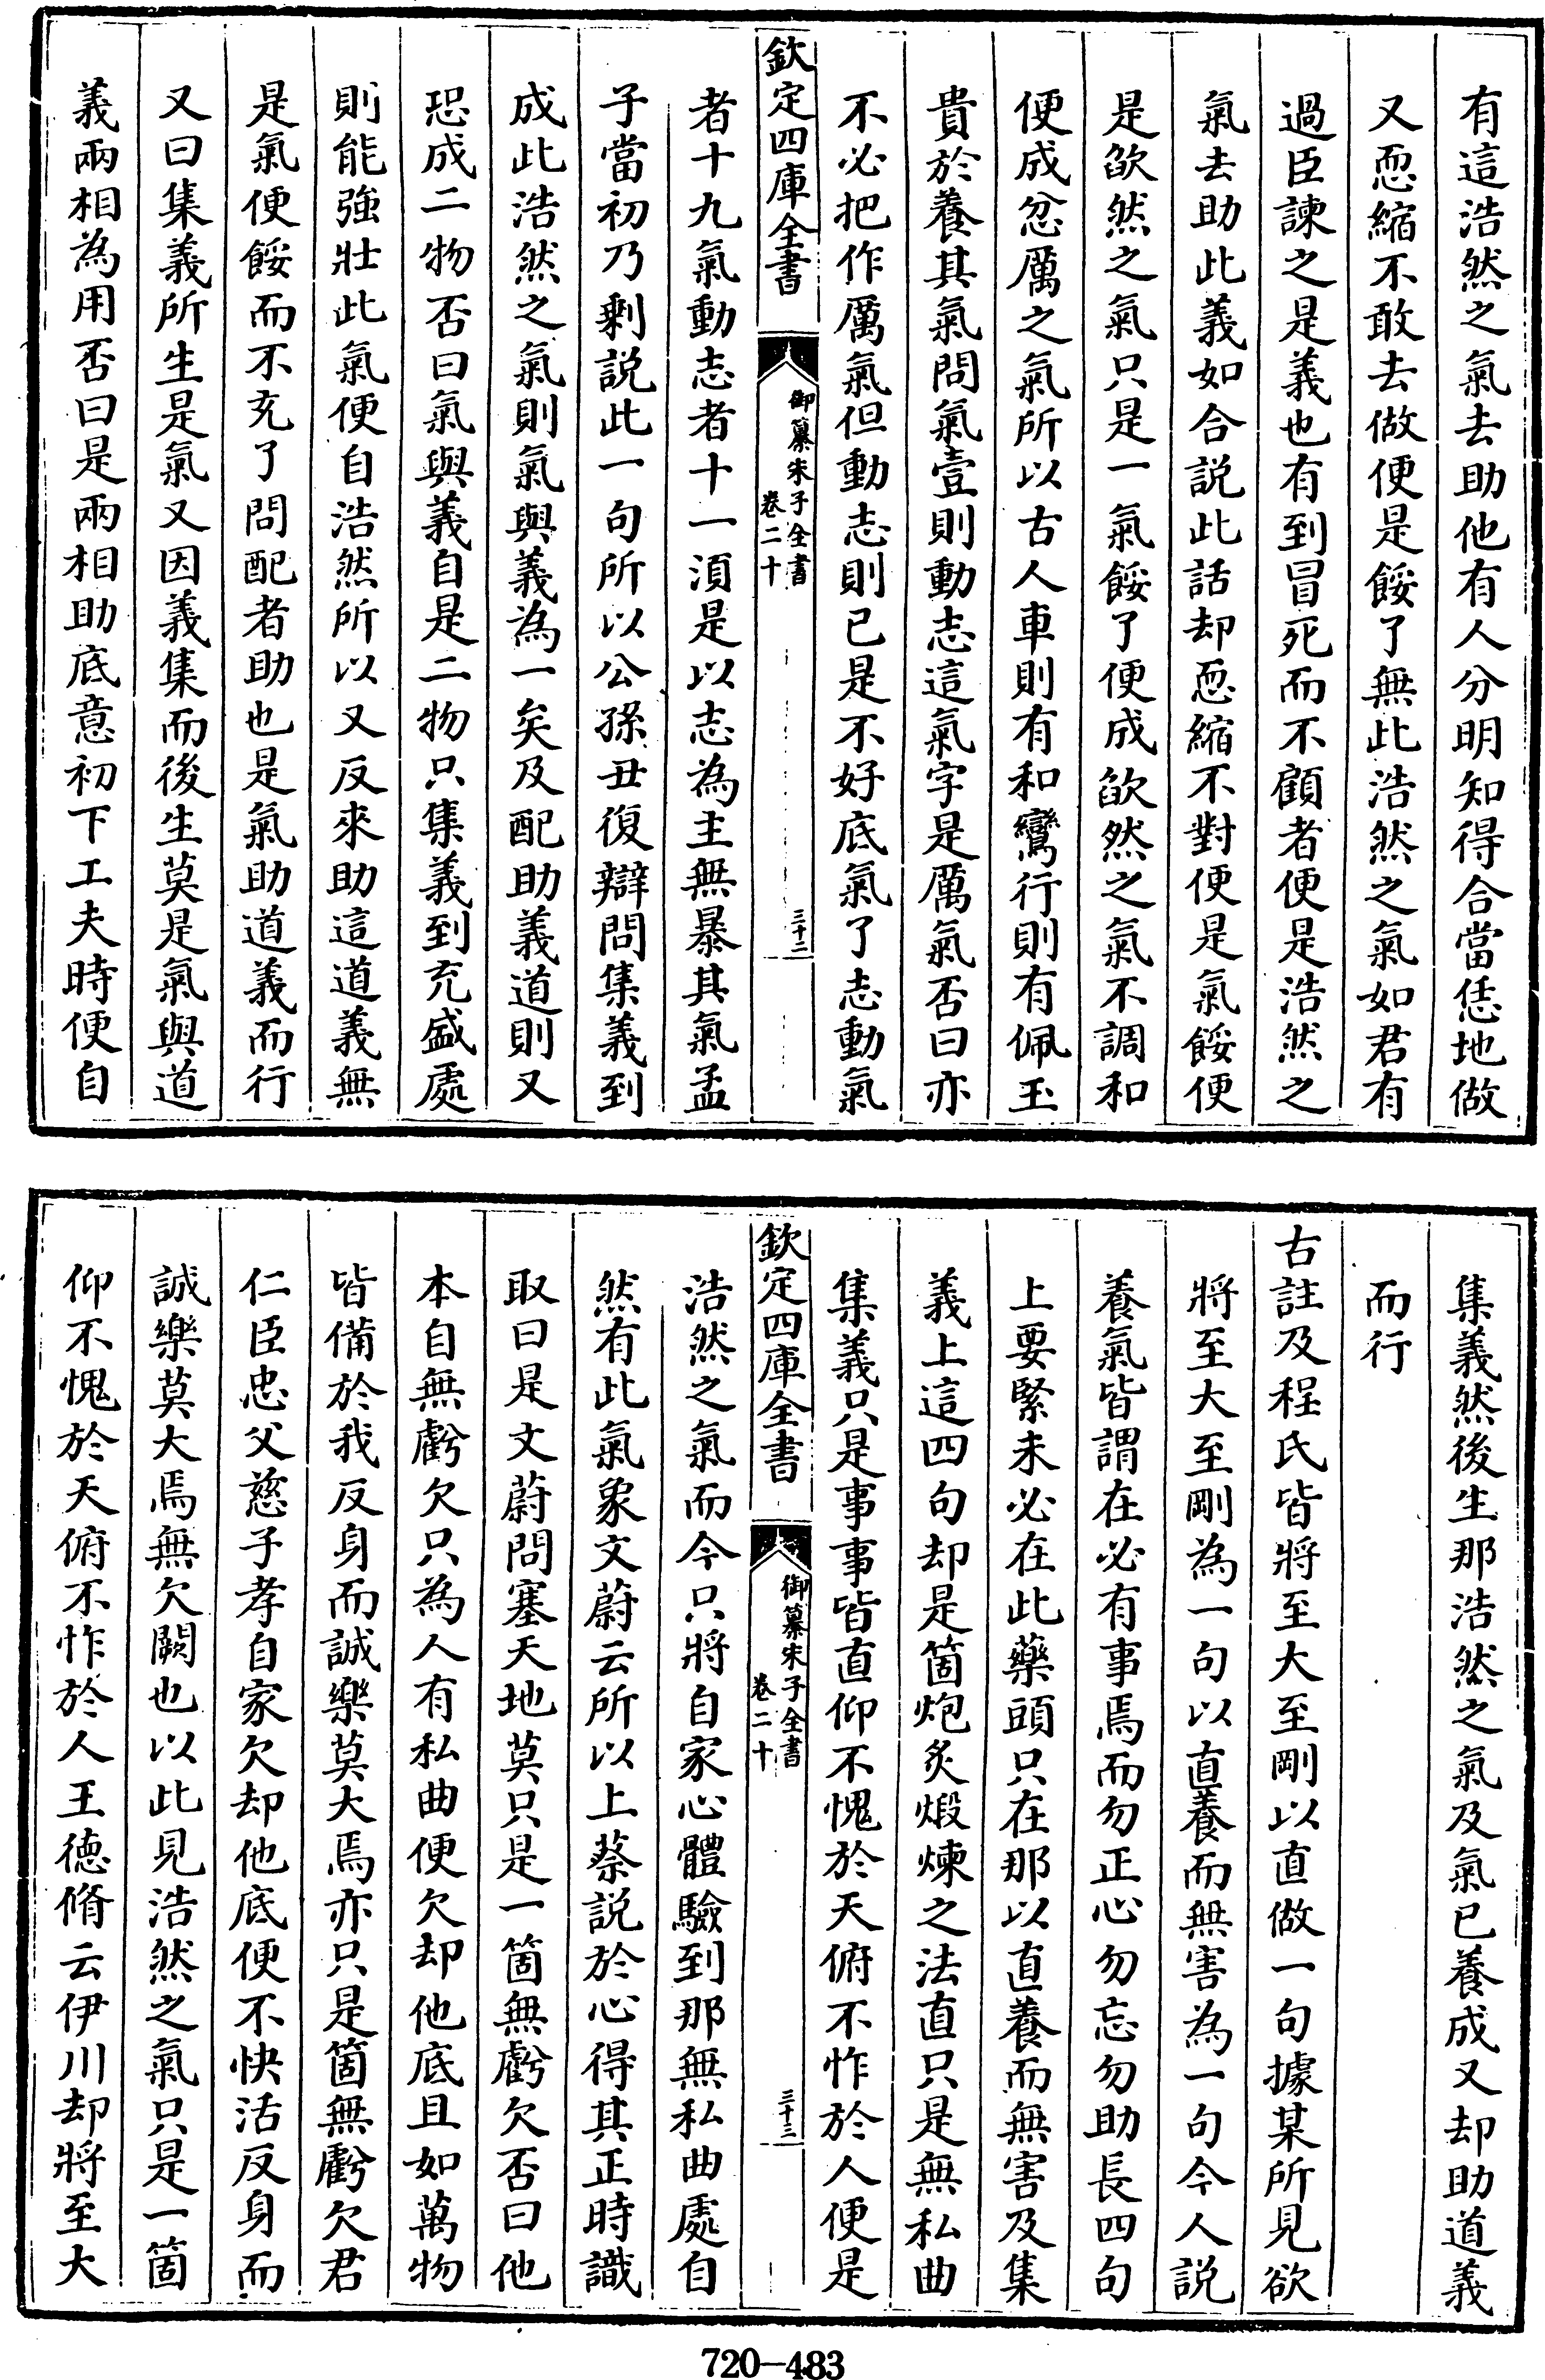 有這浩然之氣去助他有人分明知得合當恁地做
又恧縮不敢去做便是餒了無此浩然之氣如君有
過臣諫之是義也有到冒死而不顧者便是浩然之
氣去助此義如合説此話却恧縮不對便是氣餒便
是欿然之氣只是一氣餒了便成欿然之氣不調和
便成忿厲之氣所以古人車則有和鸞行則有佩玉
貴於養其氣問氣壹則動志這氣字是厲氣否曰亦
不必把作厲氣但動志則已是不好底氣了志動氣
欽定四庫全書
御纂朱子全書
卷二十
三十二
者十九氣動志者十一須是以志為主無暴其氣孟
子當初乃剩説此一句所以公孫丑復辯問集義到
成此浩然之氣則氣與義為一矣及配助義道則又
恐成二物否曰氣與義自是二物只集義到充盛處
則能強壯此氣便自浩然所以又反來助這道義無
是氣便餒而不充了問配者助也是氣助道義而行
又曰集義所生是氣又因義集而後生莫是氣與道
義兩相為用否曰是兩相助底意初下工夫時便自
集義然後生那浩然之氣及氣已養成又却助道義
而行
古註及程氏皆將至大至剛以直做一句據某所見欲
將至大至剛為一句以直養而無害為一句今人説
養氣皆謂在必有事焉而勿正心勿忘勿助長四句
上要緊未必在此藥頭只在那以直養而無害及集
義上這四句却是箇炮炙煅煉之法直只是無私曲
集義只是事事皆直仰不愧於天俯不怍於人便是
欽定四庫全書
御纂朱子全書
卷二十
三十三
浩然之氣而今只將自家心體驗到那無私曲處自
然有此氣象文蔚云所以上蔡説於心得其正時識
取曰是文蔚問塞天地莫只是一箇無虧欠否曰他
本自無虧欠只為人有私曲便欠却他底且如萬物
皆備於我反身而誠樂莫大焉亦只是箇無虧欠君
仁臣忠父慈子孝自家欠却他底便不快活反身而
誠樂莫大焉無欠闕也以此見浩然之氣只是一箇
仰不愧於天俯不怍於人王德脩云伊川却將至大
720—483